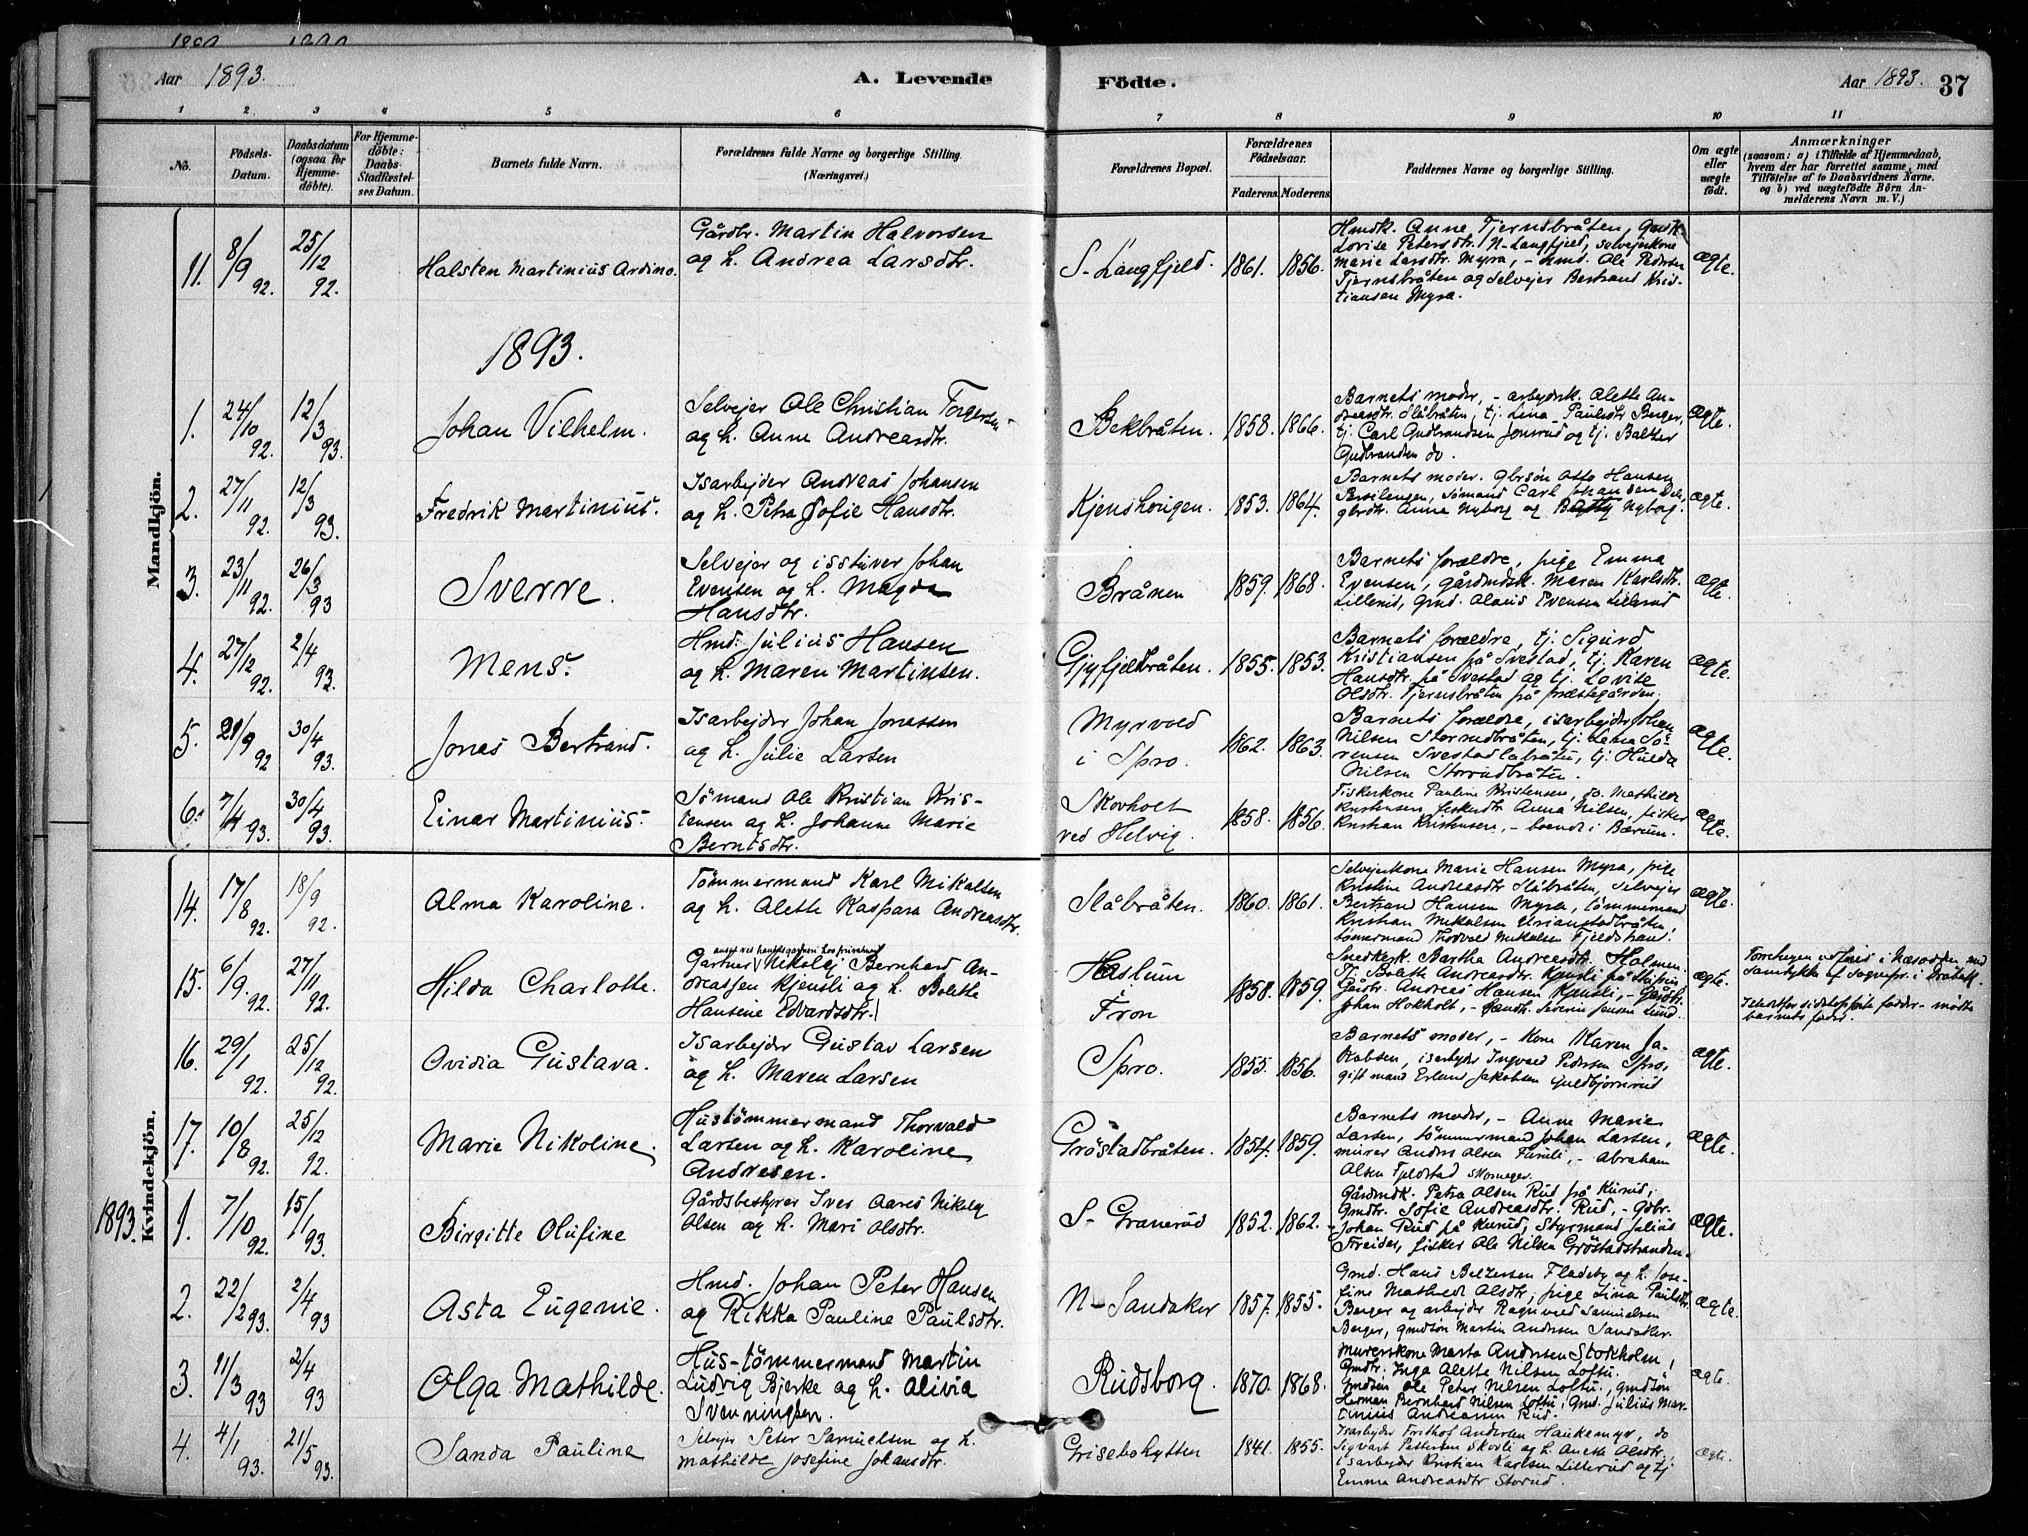 Aar 1893.
A. Levende
Födte.
Aar 1893. 37
1 2 3 4 5 6 7 8 9 10 11
No.
Födsels-Datum.
Daabsdatum (ogsaa for Hjemme-döbte).
For Hjemme-döbte: Daabs-Stadfæstelses Datum.
Barnets fulde Navn.
Forældrenes fulde Navne og borgerlige Stilling.
(Næringsvei.)
Forældrenes Bopæl.
Forældrenes Födselsaar.
Faderens. Moderens.
Faddernes Navne og borgerlige Stilling.
Om ægte eller uægte födt.
Anmærkninger
(saasom: a) i Tilfælde af Hjemmedaab,
hvem der har forrettet samme, med
Tilföielse af to Daabsvidners Navne,
og b) ved uægtefödte Börn An-
melderens Navn m. V.)
Mandkjön.
11. 8/9 92. 25/12 92. Halsten Martinius Ardino.
Gårdbr. Martin Halvorsen
og h. Andrea Larsdtr.
S. Langfjeld. 1861. 1856.
Hmdk. Anne Tjernsbråten, Gmdk.
Lovise Petersdtr. N-Langfjeld, selvejerkone
Marie Larsdtr. Myra, - hmd. Ole Pedersen
Tjernsbråten og selvejer Bertrand Kris-
tiansen Myra.
ægte.
1893.
1. 24/10 92. 12/3 93. Johan Vilhelm.
Selvejer Ole Christian Torgersen
og h. Anne Andreasdtr.
Bekbråten. 1858. 1866.
Barnets moder, - arbejdsk. Alette An-
dreasdtr. Slåbråten, tj. Lina Paulsdtr Berger,
tj. Carl Gudbrandsen Jonsrud og tj. Baltzer
Gudbrandsen do.
ægte.
2. 27/11 92. 12/3 93. Fredrik Martinius.
Isarbejder Andreas Johansen
og h. Petra Sofie Hansdtr.
Kjenshaugen. 1853. 1864.
Barnets moder. Gbrsøn Otto Hansen
Persilengen, Sømand Carl Johansen
gbrdtr. Anna Nyborg og Betty Nyborg.
ægte.
3. 23/11 92. 26/3 93 Sverre.
Selvejer og isstuver Johan
Evensen og h. Magda
Hansdtr.
Brånen 1859. 1868.
Barnets forældre, pige Emma
Evensen, gårdmdsk. Maren Karlsdtr.
Lillerud, Gmd. Olaus Evensen Lillerud
ægte.
4. 27/12 92. 2/4 93. Mens.
Hmd. Julius Hansen
og h. Maren Martinsen.
Gjyfjeldbråten. 1855. 1853.
Barnets forældre, tj. Sigurd
Kristiansen på Svestad, tj. Karen
Hansdtr. på Svestad og tj. Lovise
Olsdtr. Tjernsbråten på præstegården.
ægte.
5. 21/9 92 30/4 93. Jonas Bertrand.
Isarbejder Johan Jonassen
og h. Julie Larsen
Myrvold
i Spro.
1862. 1863.
Barnets forældre, isarbejder Johan
Nilsen Storrudbråten, tj. Lena Sö-
rensen Svestadlabråten, tj. Hulda
Nilsen Storrudbråten.
ægte.
6. 7/4 93. 30/4 93. Einar Martinius.
Sömand Ole Kristian Kris-
tensen og h. Johanne Marie
Berntsdtr.
Skovholt
ved Helvig.
1858. 1856.
Fiskerkone Pauline Kristensen, do. Mathilde
Kristensen, fiskerdtr. Anna Nilsen, fisker
Kristian Kristensen, - boende i Bærum.
ægte.
Kvindekjön.
14. 17/8 92. 18/9 92. Alma Karoline.
Tömmermand Karl Mikalsen
og h. Alette Kaspara Andreasdtr.
Slåbråten. 1860. 1861.
Selvejerkone Marie Hansen Myra, pige
Kristine Andreasdtr Slåbråten, selvejer
Bertrand Hansen Myra, tømmermand
Kristian Mikalsen Urianstadbråten,
tömmermand Thorvald Mikalsen Fjeldstrand.
ægte.
15. 6/9. 92. 27/11 92. Hilda Charlotte.
Gartner Nikolaj Bernhard An-
dreassen Kjensli og h. Bolette
Hansine Edvardsdtr.
Haslum
Fron
1858. 1859.
Snedkerk. Bartha Andreasdtr. Holmen
Tj. Bolette Andreasdtr. Kjensli på
Gårdbr. Andreas Hansen Kjensli, -
Johan Hokholt, - Severin Jensen Lund.
ægte.
Foreleggen i Næsodden med
Samtykke af Sognepr. i Drøbak.
barnets fader.
16. 29/1 92. 25/12 92. Ovidia Gustava.
Isarbejder Gustav Larsen
og h. Maren Larsen
Spro. 1855. 1856.
Barnets moder, - Kone Karen Ja-
kobsen, isarbejder Ingvald Pedersen Spro,
gift mand Erland Jakobsen Guldbjørnsrud
ægte.
17. 10/8 92. 25/12 92. Marie Nikoline.
Hustömmermand Thorvald
Larsen og h. Karoline
Andresen.
Gröstadbråten. 1854. 1859.
Barnets moder, - Anne Marie
Larsen, tømmermand Johan Larsen,
murer Anders Olsen Furuli, - Abraham
Olsen Fjeldstad Skomager.
ægte.
1893.
1. 7/10 92. 15/1 93. Birgitte Olufine
Gårdsbestyrer Ives Aares Nikolaj
Olsen og h. Mari Olsdtr.
S. Granerud 1852. 1862.
Gårdmdk. Petra Olsen Rud på Kurud,
Gmdtr. Sofie Andreasdtr. Rud, - Gdbr.
Johan Rud på Kurud, Styrmand Julius
Freider, fisker Ole Nilsen Gröstadstranden.
ægte.
2. 22/2 93. 2/4 93 Asta Eugenie.
Hmd. Johan Peter Hansen
og Rikka Pauline Paulsdtr.
N. Sandaker 1857. 1855.
Gmd. Hans Beltzersen Fladeby og h. Jose-
fine Mathilde Olsdtr, pige Lina Paulsdtr.
Berger og arbejder Ragnvald Samuelsen
Berger, gmdsön Martin Andersen Sandaker.
ægte.
3. 11/3 93 2/4 93 Olga Mathilde.
Hus-tömmermand Martin
Ludvig Bjerke og h. Olivia
Svenningsen.
Rudsborg. 1870. 1868.
Murerskone Marta Andersen Stokholm,
Gmdtr. Inga Alette Nilsen Loftu.
Gmdsøn Ole Peter Nilsen Loftu, gmdsøn
Herman Bernhard Nilsen Loftu, Gmd. Julius Mar-
tinius Andreassen Rud.
ægte.
4. 4/1 93. 21/5 93. Sanda Pauline
Selvejer Peter Samuelsen og h.
Mathilde Josefine Johansdtr.
Grisebohytten 1841. 1855.
Isarbejder Frithof Andersen Haukemyr, do
Sigvart Pettersen Skovli og h. Anette Olsdtr,
isarbejder Kristian Karlsen Lillerud og tj
Emma Andreasdtr Storud.
ægte.